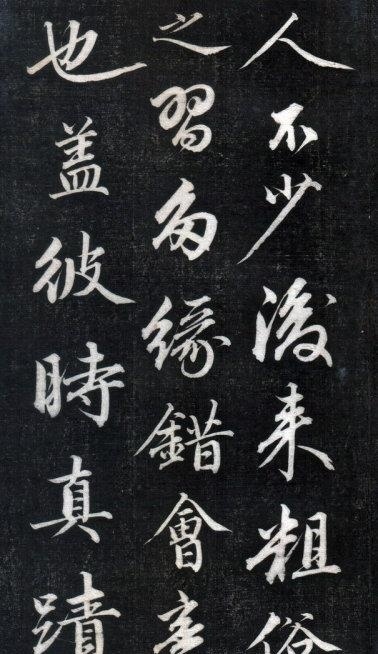 人不少後来粗俗
之習多緣錯會
也盖彼時真蹟